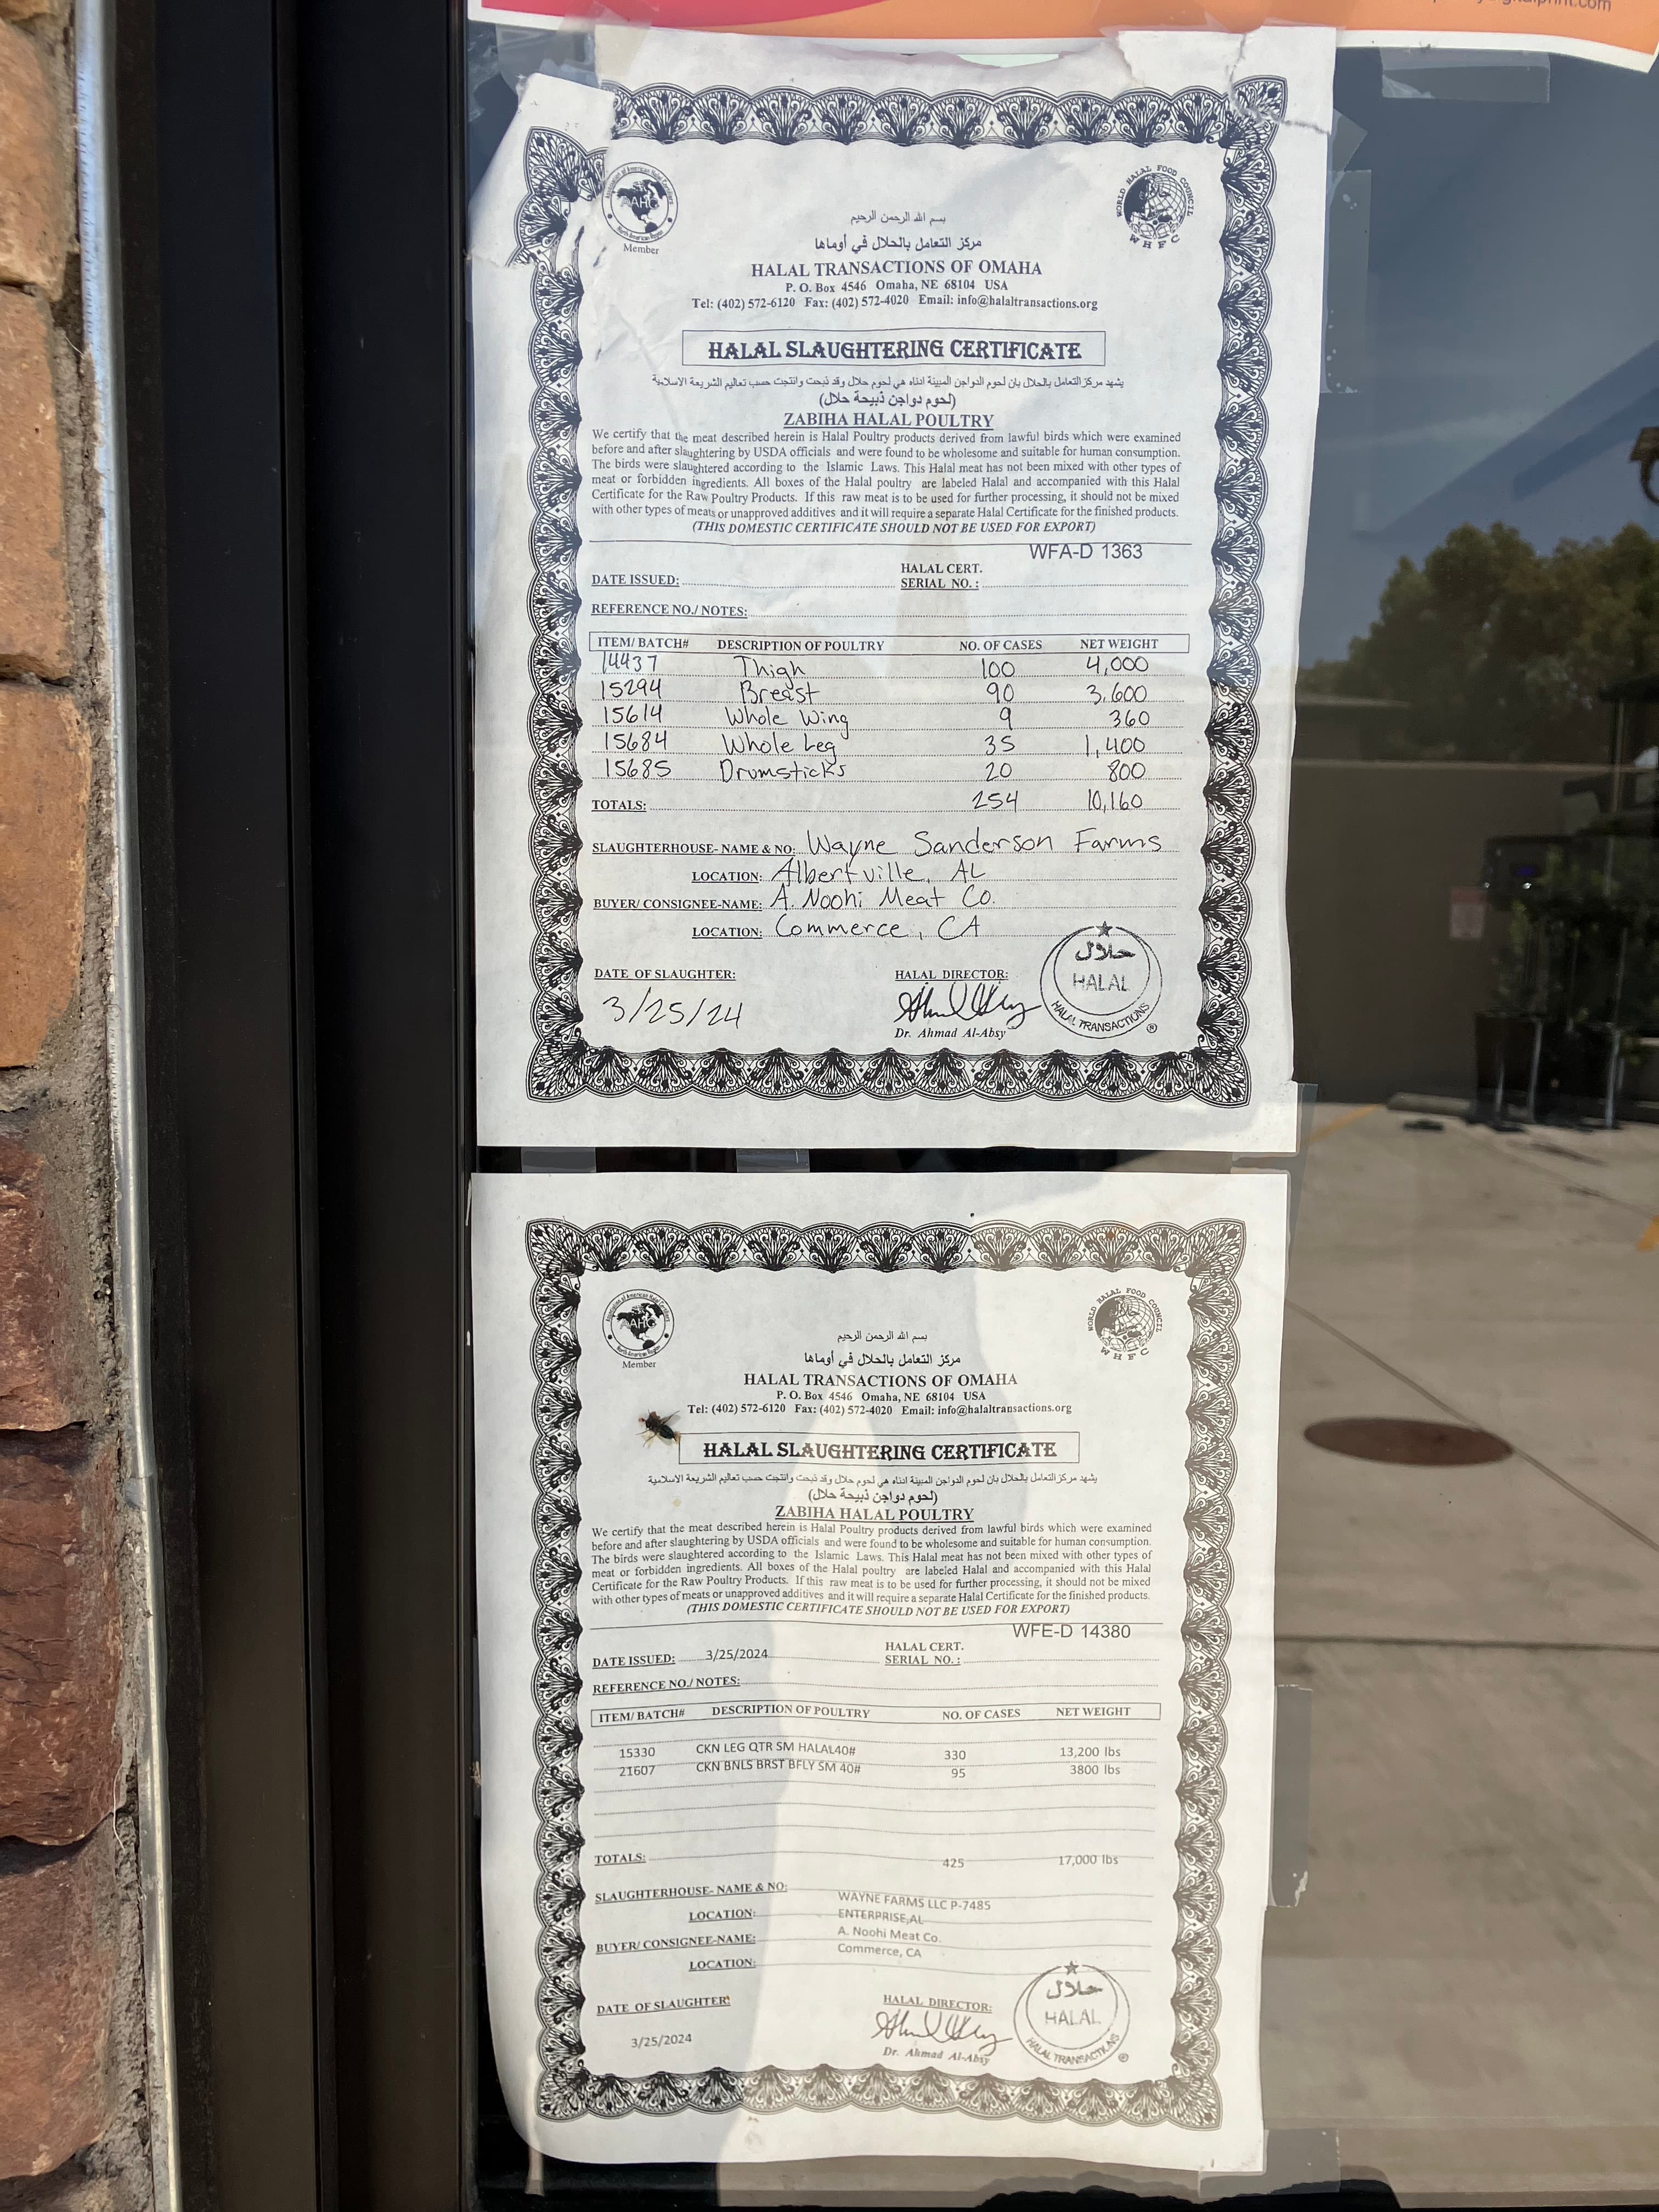 digitalprint.com
AAHC
Member
WORLD HALAL FOOD COUNCIL
WHFC
بسم الله الرحمن الرحيم
مركز التعامل بالحلال في أوماها
HALAL TRANSACTIONS OF OMAHA
P. O. Box 4546 Omaha, NE 68104 USA
Tel: (402) 572-6120 Fax: (402) 572-4020 Email: info@halaltransactions.org
HALAL SLAUGHTERING CERTIFICATE
يشهد مركز التعامل بالحلال بان لحوم الدواجن المبينة ادناه هي لحوم حلال وقد ذبحت وانتجت حسب تعاليم الشريعة الاسلامية
(لحوم دواجن ذبيحة حلال)
ZABIHA HALAL POULTRY
We certify that the meat described herein is Halal Poultry products derived from lawful birds which were examined
before and after slaughtering by USDA officials and were found to be wholesome and suitable for human consumption.
The birds were slaughtered according to the Islamic Laws. This Halal meat has not been mixed with other types of
meat or forbidden ingredients. All boxes of the Halal poultry are labeled Halal and accompanied with this Halal
Certificate for the Raw Poultry Products. If this raw meat is to be used for further processing, it should not be mixed
with other types of meats or unapproved additives and it will require a separate Halal Certificate for the finished products.
(THIS DOMESTIC CERTIFICATE SHOULD NOT BE USED FOR EXPORT)
WFA-D 1363
DATE ISSUED: HALAL CERT. SERIAL NO. :
REFERENCE NO./ NOTES:
ITEM/ BATCH# DESCRIPTION OF POULTRY NO. OF CASES NET WEIGHT
14437 Thigh 100 4,000
15294 Breast 90 3,600
15614 Whole Wing 9 360
15684 Whole Leg 35 1,400
15685 Drumsticks 20 800
TOTALS: 254 10,160
SLAUGHTERHOUSE- NAME & NO: Wayne Sanderson Farms
LOCATION: Albertville, AL
BUYER/ CONSIGNEE-NAME: A. Noohi Meat Co.
LOCATION: Commerce, CA
DATE OF SLAUGHTER: HALAL DIRECTOR:
3/25/24
Dr. Ahmad Al-Absy
حلال
HALAL
HALAL TRANSACTIONS
®
AAHC
Member
WORLD HALAL FOOD COUNCIL
WHFC
بسم الله الرحمن الرحيم
مركز التعامل بالحلال في أوماها
HALAL TRANSACTIONS OF OMAHA
P. O. Box 4546 Omaha, NE 68104 USA
Tel: (402) 572-6120 Fax: (402) 572-4020 Email: info@halaltransactions.org
HALAL SLAUGHTERING CERTIFICATE
يشهد مركز التعامل بالحلال بان لحوم الدواجن المبينة ادناه هي لحوم حلال وقد ذبحت وانتجت حسب تعاليم الشريعة الاسلامية
(لحوم دواجن ذبيحة حلال)
ZABIHA HALAL POULTRY
We certify that the meat described herein is Halal Poultry products derived from lawful birds which were examined
before and after slaughtering by USDA officials and were found to be wholesome and suitable for human consumption.
The birds were slaughtered according to the Islamic Laws. This Halal meat has not been mixed with other types of
meat or forbidden ingredients. All boxes of the Halal poultry are labeled Halal and accompanied with this Halal
Certificate for the Raw Poultry Products. If this raw meat is to be used for further processing, it should not be mixed
with other types of meats or unapproved additives and it will require a separate Halal Certificate for the finished products.
(THIS DOMESTIC CERTIFICATE SHOULD NOT BE USED FOR EXPORT)
WFE-D 14380
DATE ISSUED: 3/25/2024 HALAL CERT. SERIAL NO. :
REFERENCE NO./ NOTES:
ITEM/ BATCH# DESCRIPTION OF POULTRY NO. OF CASES NET WEIGHT
15330 CKN LEG QTR SM HALAL40# 330 13,200 lbs
21607 CKN BNLS BRST BFLY SM 40# 95 3800 lbs
TOTALS: 425 17,000 lbs
SLAUGHTERHOUSE- NAME & NO: WAYNE FARMS LLC P-7485
LOCATION: ENTERPRISE,AL
BUYER/ CONSIGNEE-NAME: A. Noohi Meat Co.
LOCATION: Commerce, CA
DATE OF SLAUGHTER: HALAL DIRECTOR:
3/25/2024
Dr. Ahmad Al-Absy
حلال
HALAL
HALAL TRANSACTIONS
®